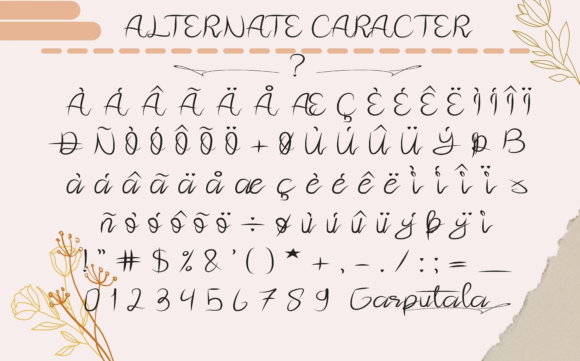 ALTERNATE CARACTER
?
À Á Â Ã Ä Å Æ Ç È É Ê Ë Ì Í Î Ï
Ð Ñ Ò Ó Ô Õ Ö + Ø Ù Ú Û Ü Ý Þ ß
à á â ã ä å æ ç è é ê ë ì í î ï
ñ ò ó ô õ ö ÷ ø ù ú û ü ý þ ÿ
! " # $ % & ' ( ) * + , - . / : ; = _
0 1 2 3 4 5 6 7 8 9 Garputala